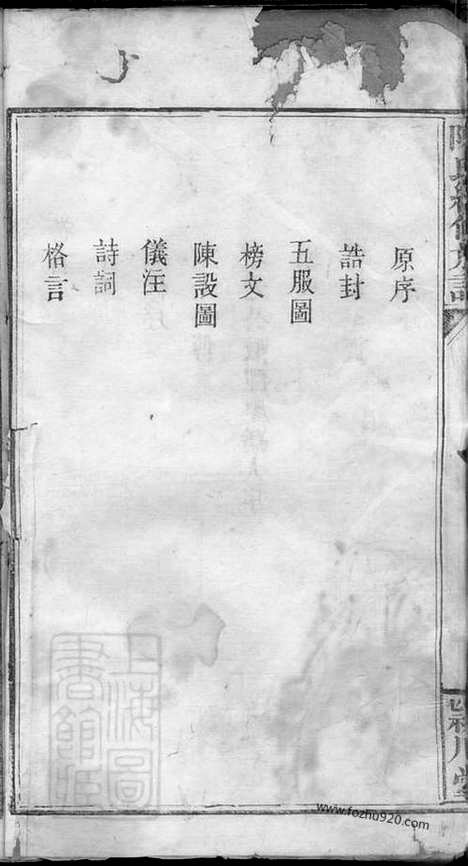 原序
誥封
五服圖
榜文
陳設圖
儀注
詩詞
格言
上海圖書館藏
www.fozhu920.com